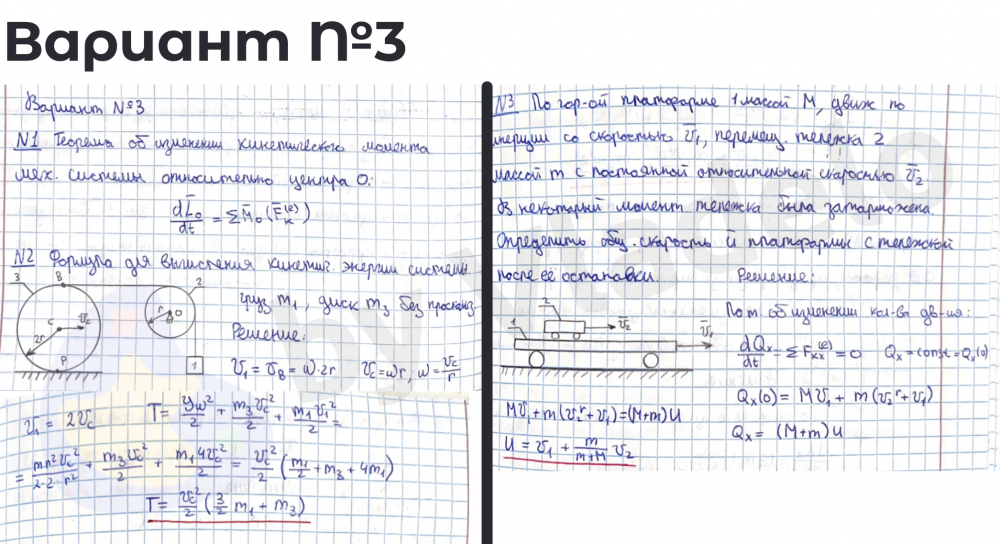 Вариант №3
Вариант №3
N1 Теорема об изменении кинетического момента
мех. системы относительно центра O:
dL̄₀/dt = ΣM̄₀(F̄ₖ⁽ᵉ⁾)
N2 Формула для вычисления кинетич. энергии системы
3 B 2
груз m₁, диск m₃ без проскальз.
C v̄c r O
Решение:
2r
P 1
v₁ = v_B = ω·2r v_c = ωr, ω = v_c/r
v₁ = 2v_c T = Jω²/2 + m₃v_c²/2 + m₁v₁²/2 =
= mr²v_c²/2·2·r² + m₃v_c²/2 + m₁4v_c²/2 = v_c²/2 (m₁/2 + m₃ + 4m₁)
T = v_c²/2 (3/2 m₁ + m₃)
N3 По гор-ой платформе 1 массой M, движ по
инерции со скоростью v̄₁, перемещ. тележка 2
массой m с постоянной относительной скоростью v̄₂.
В некоторый момент тележка была заторможена.
Определить общ. скорость ū платформы с тележкой
после её остановки. Решение:
2 v̄₂
1 v̄₁
По т. об изменении кол-ва дв-ия:
dQₓ/dt = ΣFₖₓ⁽ᵉ⁾ = 0 Qₓ = const = Qₓ(0)
Qₓ(0) = Mv₁ + m(v₂ʳ + v₁)
Qₓ = (M+m)u
Mv₁ + m(v₂ʳ + v₁) = (M+m)u
u = v₁ + m/m+M v₂